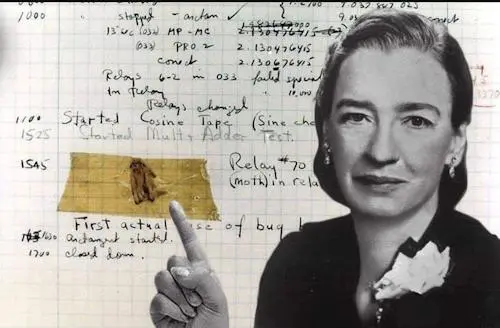 1000 stopped - arctan ✓ 9.037 847 025
13"uc (032) MP-MC 2.130476415
(033) PRO 2 2.130476415
correct 2.130676415
Relays 6-2 in 033 failed special
In Relay
Relays changed
1100 Started Cosine Tape (Sine che
1525 Started Mult+ Adder Test.
1545 Relay #70
(moth) in rela
First actual se of bug b
1630 arctangent started.
1700 closed down.